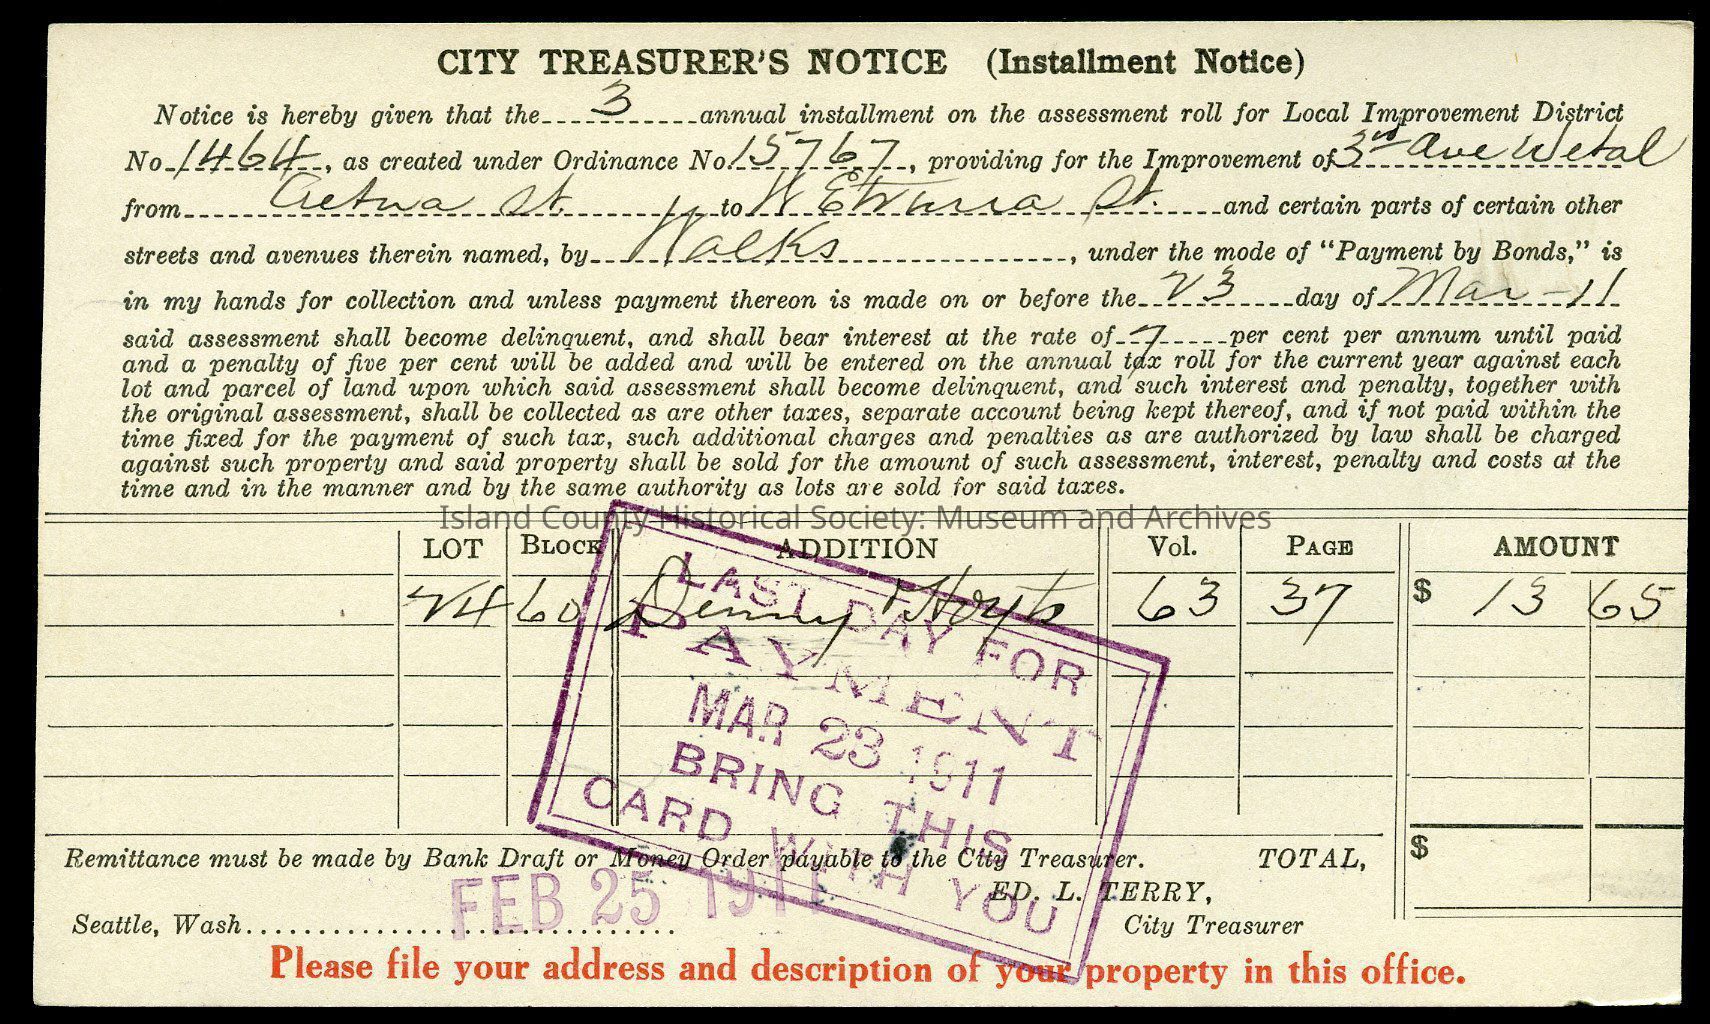 CITY TREASURER'S NOTICE (Installment Notice)
Notice is hereby given that the 3 annual installment on the assessment roll for Local Improvement District
No. 1464, as created under Ordinance No. 15767, providing for the Improvement of 3rd Ave W et al
from Aetna St. to W Etruria St. and certain parts of certain other
streets and avenues therein named, by Walks, under the mode of "Payment by Bonds," is
in my hands for collection and unless payment thereon is made on or before the 23 day of Mar-11
said assessment shall become delinquent, and shall bear interest at the rate of 7 per cent per annum until paid
and a penalty of five per cent will be added and will be entered on the annual tax roll for the current year against each
lot and parcel of land upon which said assessment shall become delinquent, and such interest and penalty, together with
the original assessment, shall be collected as are other taxes, separate account being kept thereof, and if not paid within the
time fixed for the payment of such tax, such additional charges and penalties as are authorized by law shall be charged
against such property and said property shall be sold for the amount of such assessment, interest, penalty and costs at the
time and in the manner and by the same authority as lots are sold for said taxes.
Island County Historical Society: Museum and Archives
LOT BLOCK ADDITION Vol. PAGE AMOUNT
24 60 Denny & Hoyts 63 37 $ 13 65
LAST DAY FOR
PAYMENT
MAR 23 1911
BRING THIS
CARD WITH YOU
Remittance must be made by Bank Draft or Money Order payable to the City Treasurer. TOTAL, $
ED. L. TERRY,
FEB 25 1911
Seattle, Wash. City Treasurer
Please file your address and description of your property in this office.